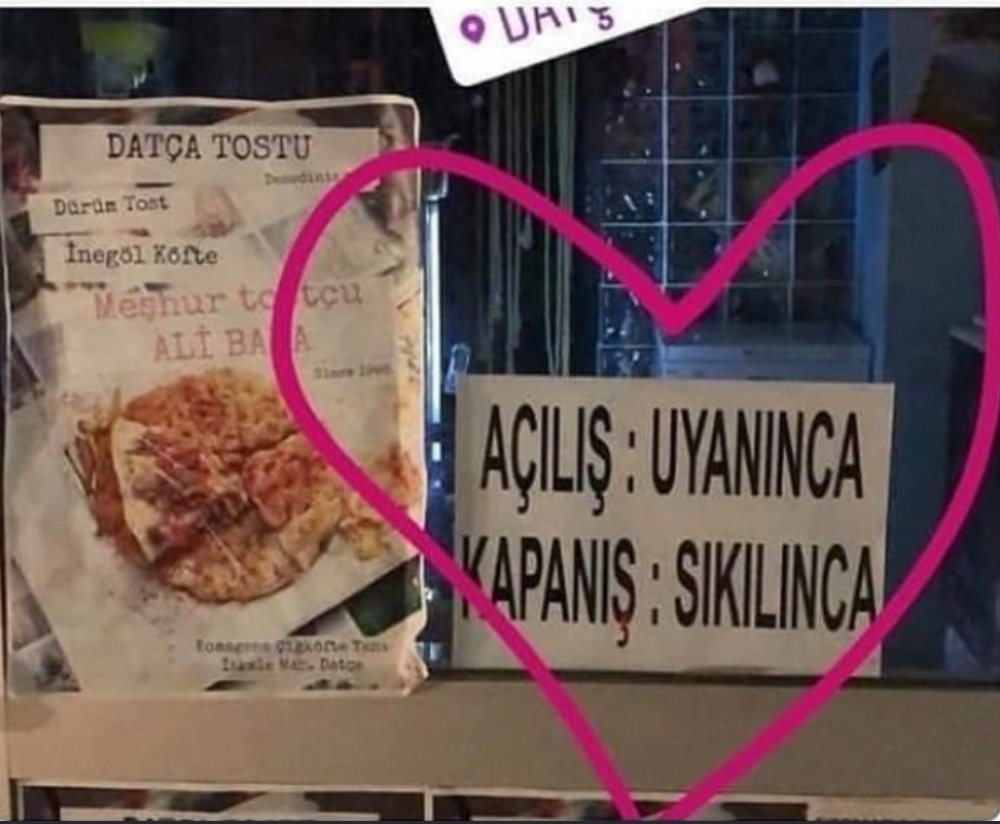 DATÇ
DATÇA TOSTU
Dürüm Tost
İnegöl Köfte
Meşhur tostçu
ALİ BABA
Since
Komagene Çiğköfte Yanı
İskele Mah. Datça
AÇILIŞ : UYANINCA
KAPANIŞ : SIKILINCA